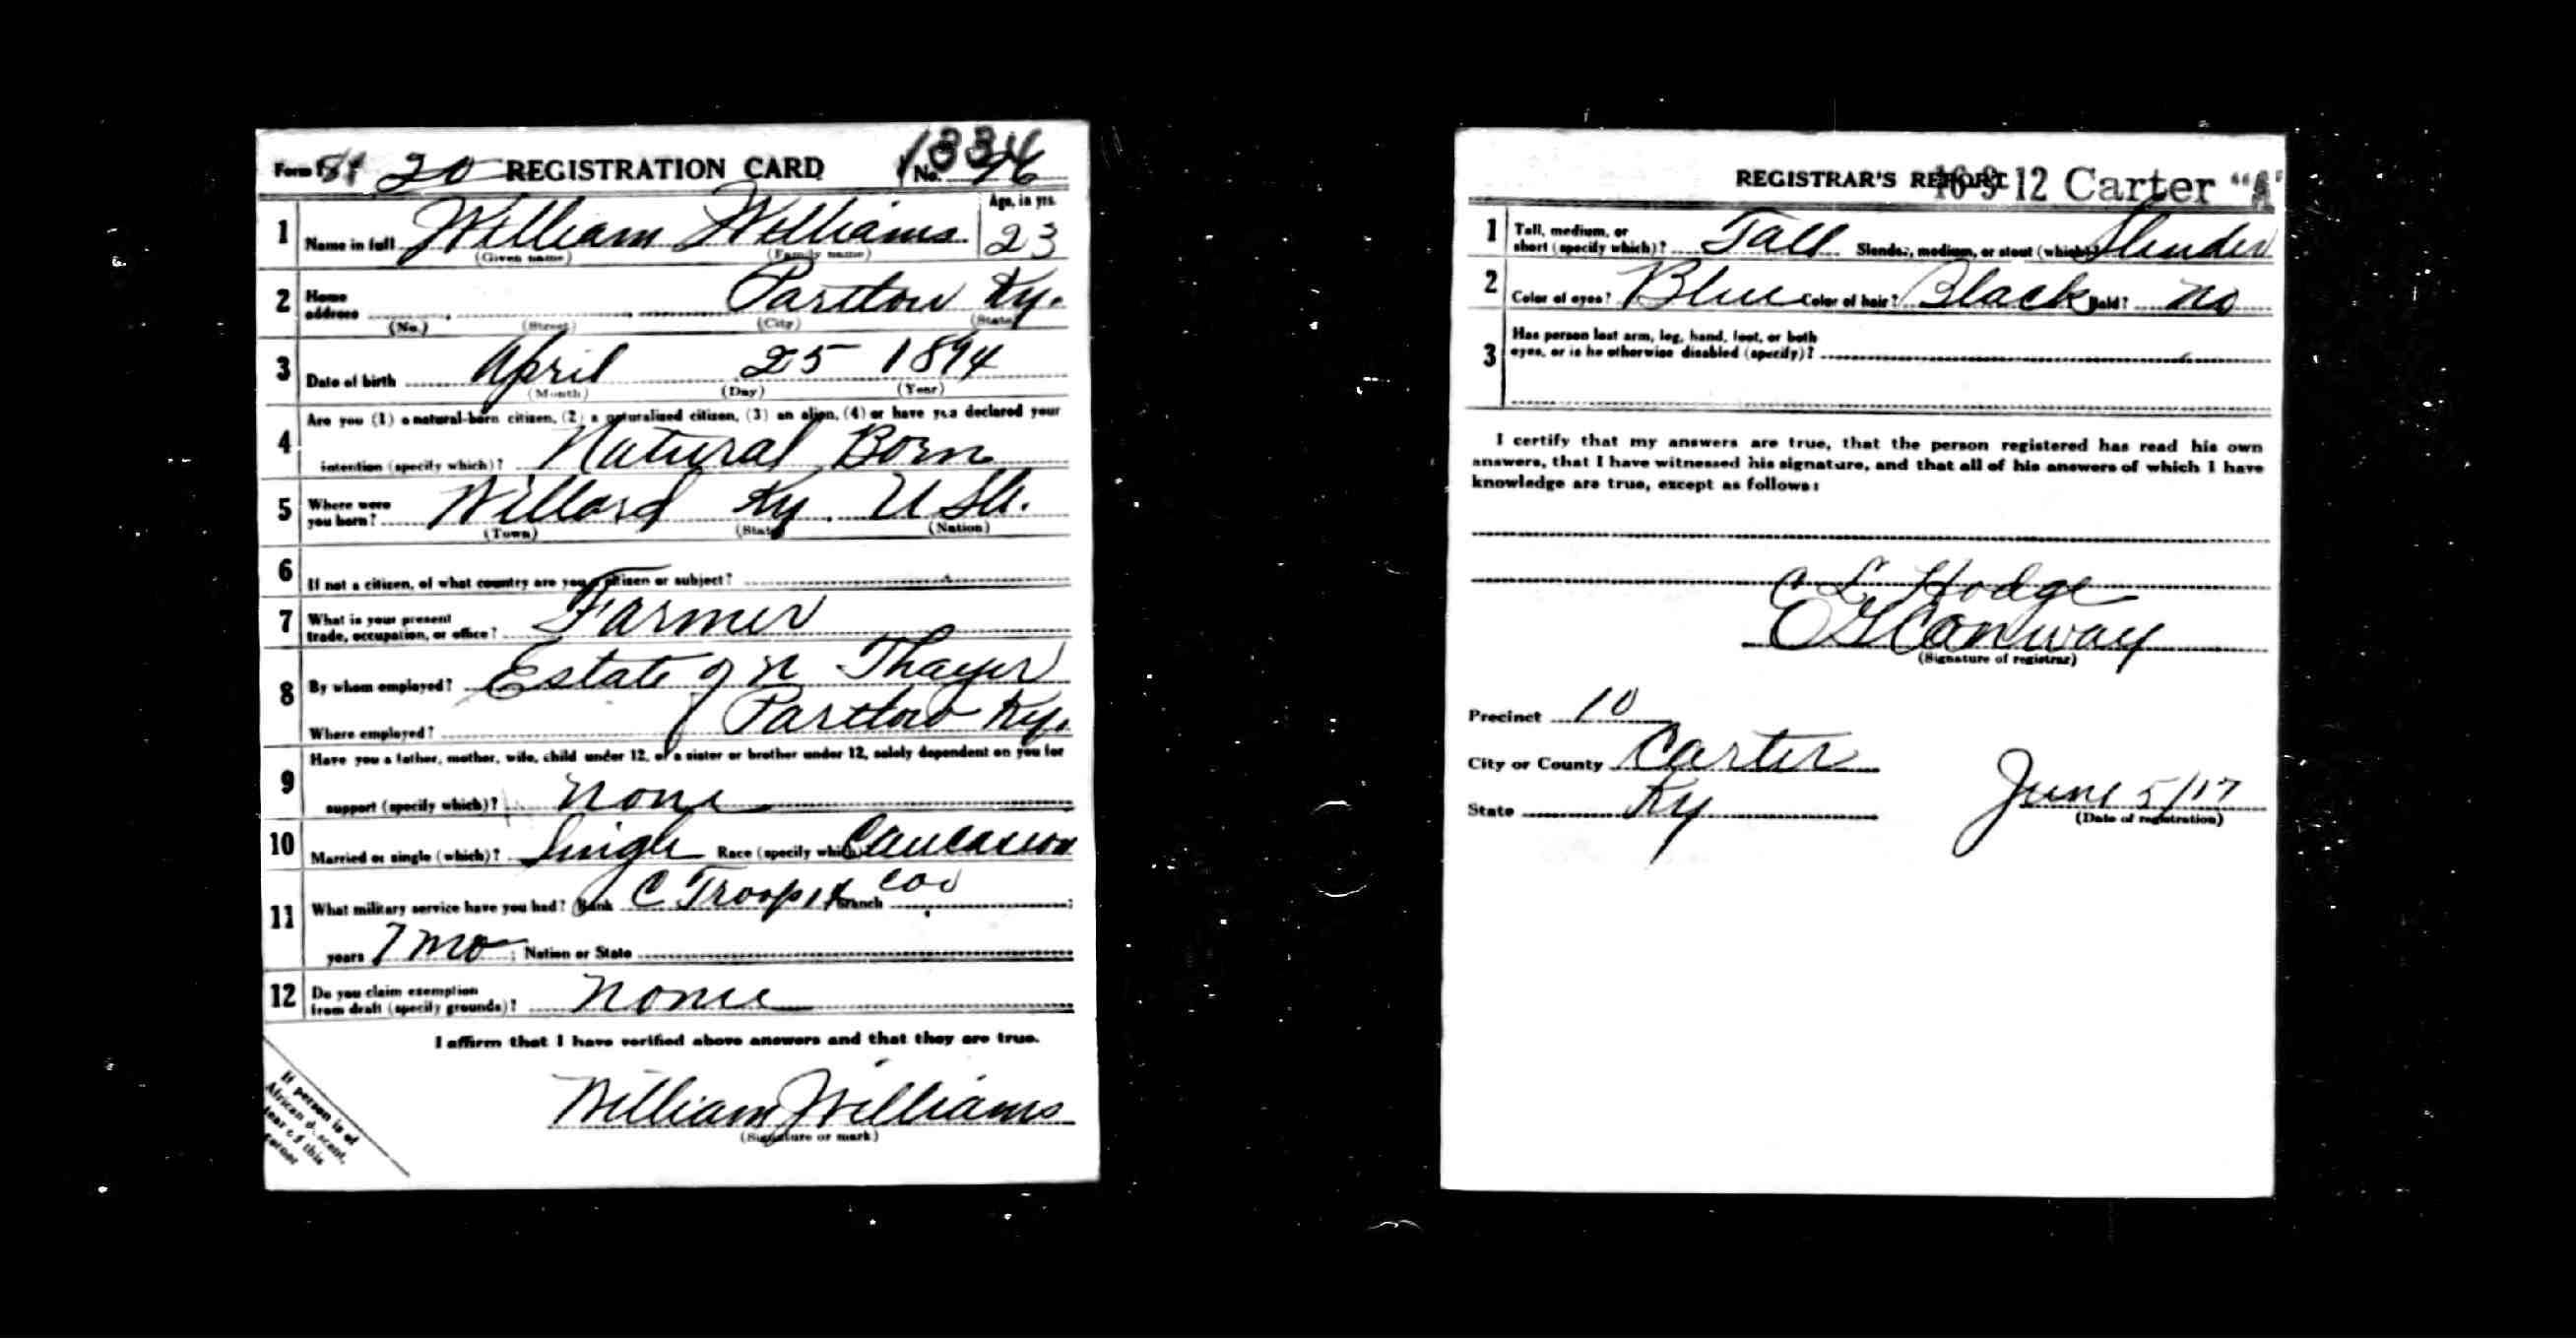 Form 1 81 20 REGISTRATION CARD No. 26
1334
Age, in yrs.
1 Name in full William Williams 23
(Given name) (Family name)
2 Home address Partlow Ky.
(No.) (Street) (City) (State)
3 Date of birth April 25 1894
(Month) (Day) (Year)
Are you (1) a natural-born citizen, (2) a naturalized citizen, (3) an alien, (4) or have you declared your
4 intention (specify which)? Natural Born
5 Where were you born? Willard Ky. U S A.
(Town) (State) (Nation)
6 If not a citizen, of what country are you a citizen or subject?
7 What is your present
trade, occupation, or office? Farmer
8 By whom employed? Estate of N Thayer
Where employed? Partlow Ky.
Have you a father, mother, wife, child under 12, or a sister or brother under 12, solely dependent on you for
9 support (specify which)? none
10 Married or single (which)? Single Race (specify which)? Caucasion
11 What military service have you had? Rank C Troop 14 branch cav ;
years 7 mo ; Nation or State
12 Do you claim exemption
from draft (specify grounds)? None
I affirm that I have verified above answers and that they are true.
William Williams
(Signature or mark)
If person is of
African descent,
tear off this
corner
REGISTRAR'S REPORT 16-3-12 Carter "A"
1 Tall, medium, or
short (specify which)? Tall Slender, medium, or stout (which)? Slender
2 Color of eyes? Blue Color of hair? Black Bald? no
3 Has person lost arm, leg, hand, foot, or both
eyes, or is he otherwise disabled (specify)?
I certify that my answers are true, that the person registered has read his own
answers, that I have witnessed his signature, and that all of his answers of which I have
knowledge are true, except as follows:
C L Hodge
Conway
(Signature of registrar)
Precinct 10
City or County Carter
State Ky June 5/17
(Date of registration)